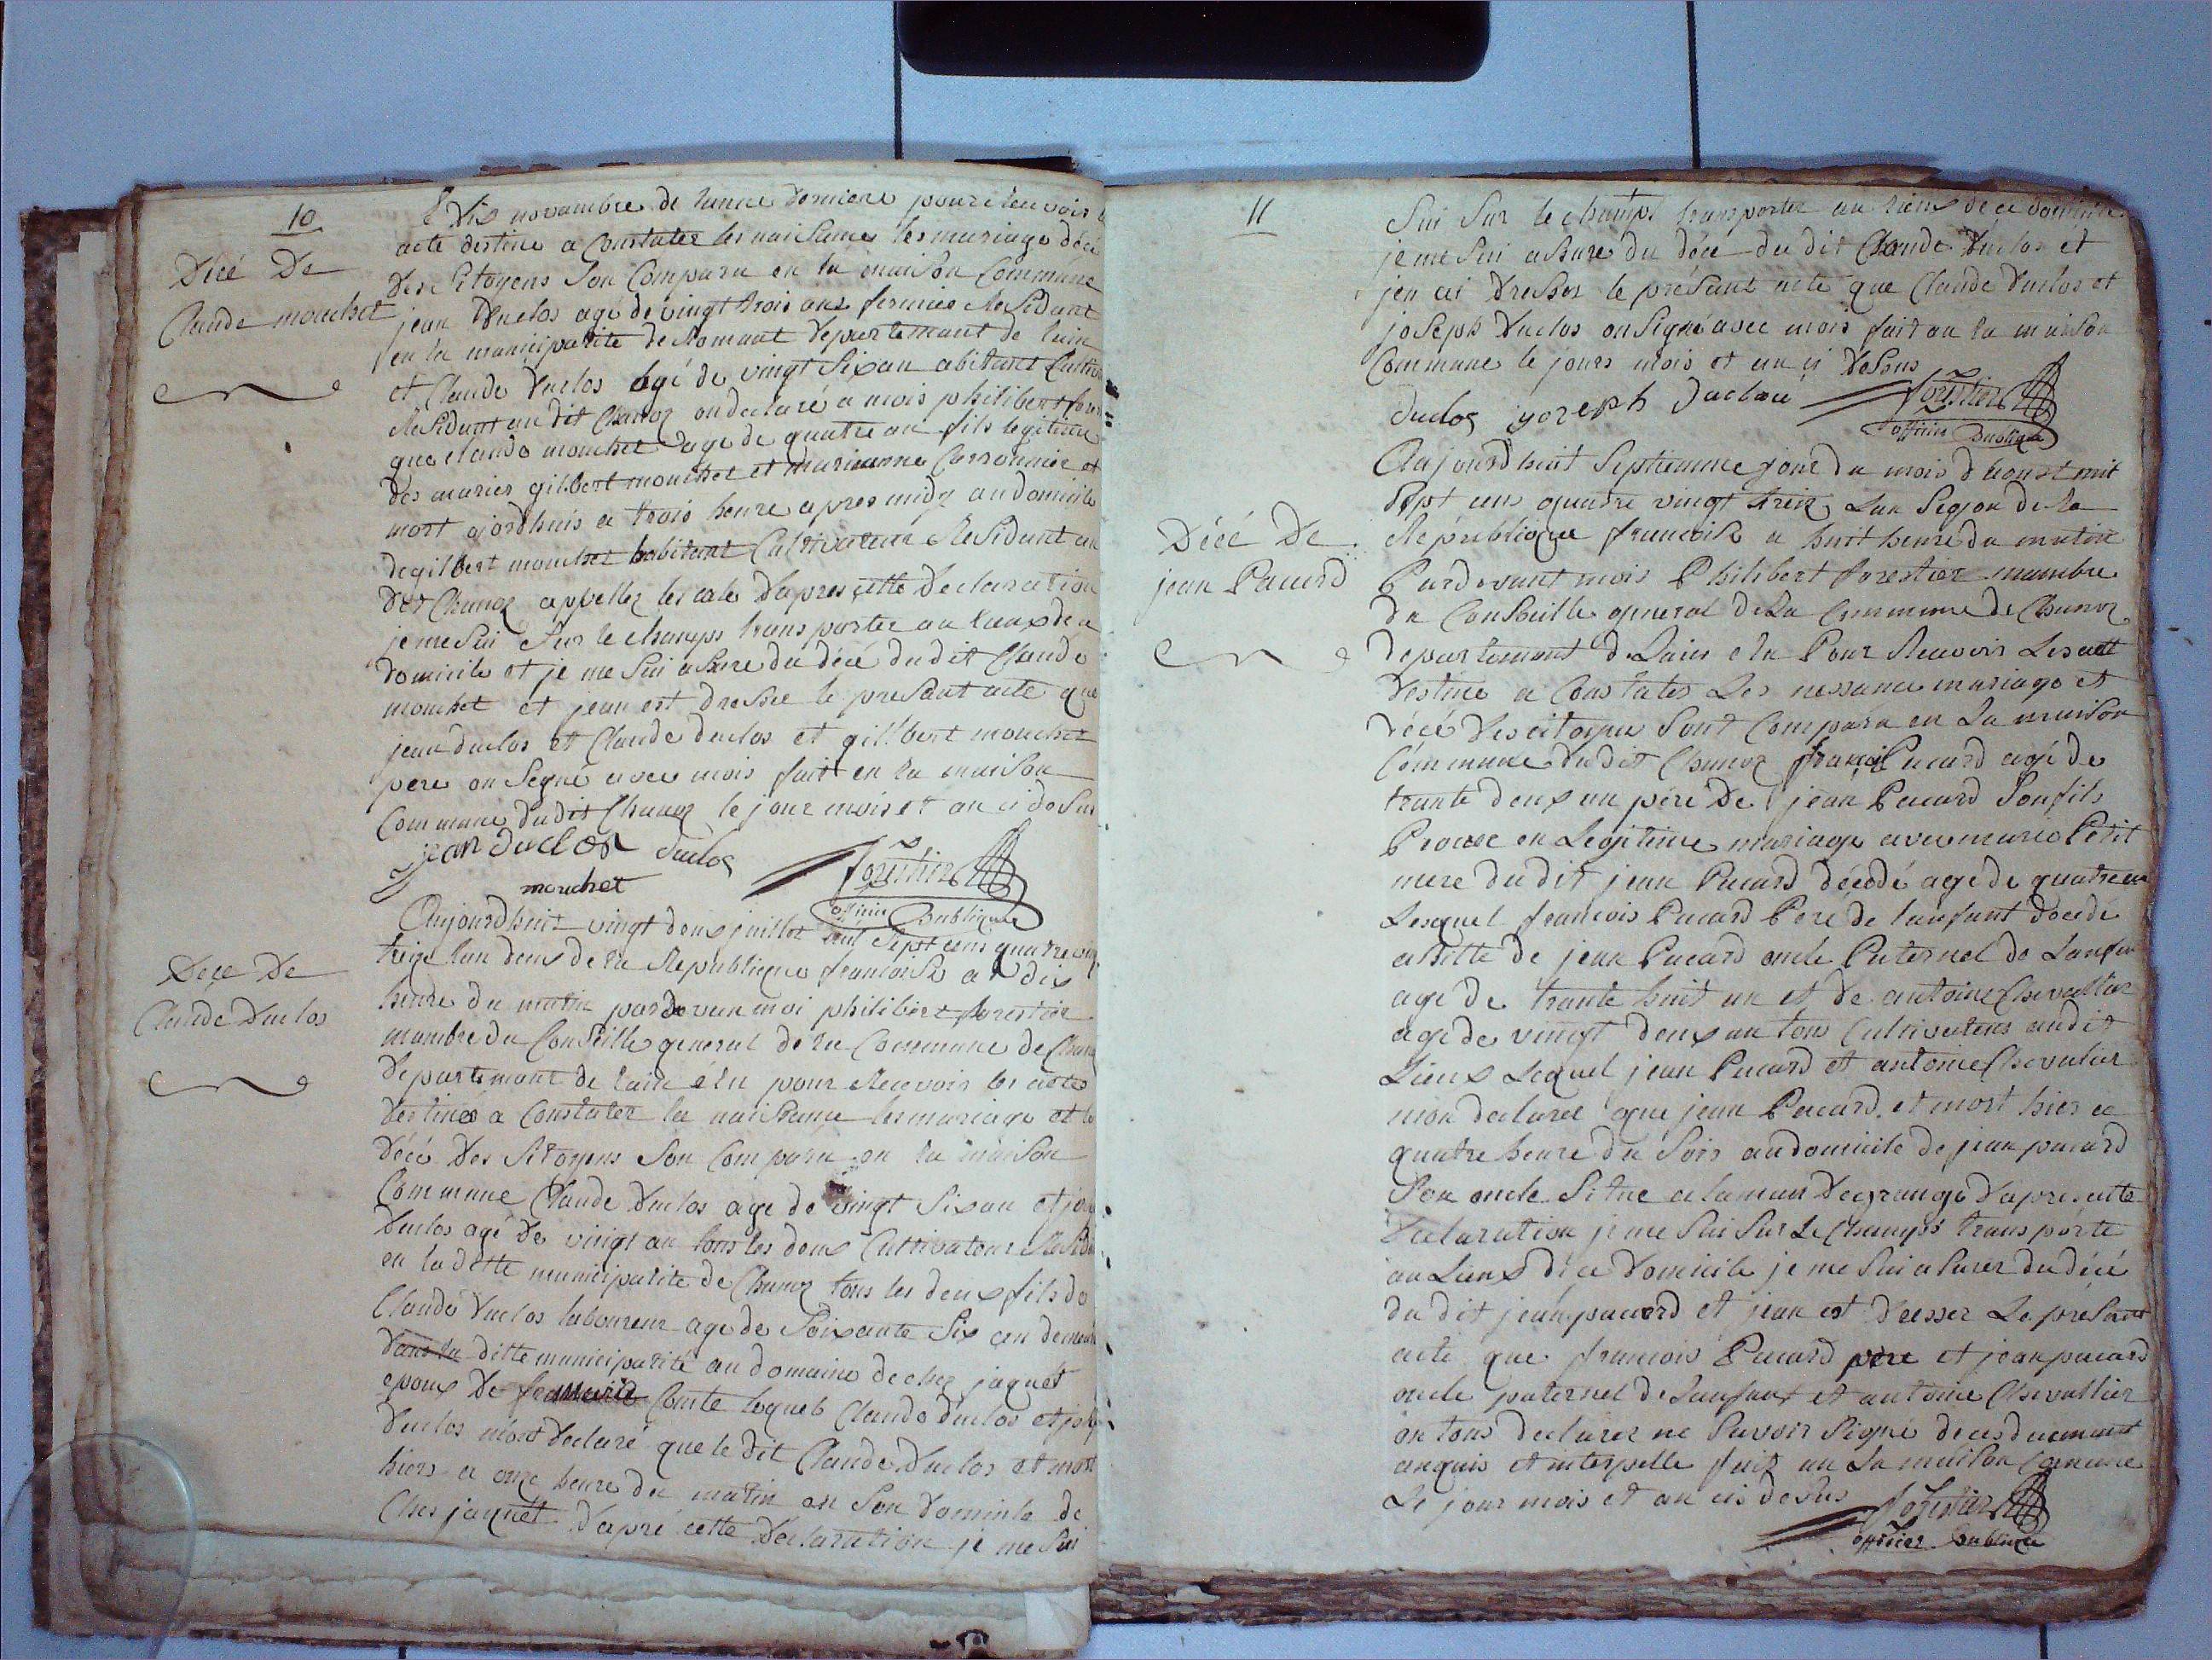 10
Décé De
Claude mouchet
dix novambre de lanne derniere pour recevoir
acte destine a Constater les naisance les mariage déce
des Citoyens Son Comparu en la maison Commune
jean Duclos agé de vingt trois ans fermier Residant
en la municipalité de Romant departemant de lain
et Claude Duclos agé de vingt Six an abitant
Residant au dit Chanoz on declaré a mois philibert
que claude mouchet age de quatre an fils legitime
des marier gilbert mouchet et marianne
mort ojordhuis a trois heure apres midy au domicile
de gilbert mouchet habitant Cultivateur Residant au
dit Chanoz appellez les cale dapres cette Declaration
je me Sui Sur le champs transporter au lieux de ce
domicile et je me Sui asure du décé du dit Claude
mouchet et jean est dressee le presant acte que
jean duclos et Claude duclos et gillbert mouchet
pere on Segné avec mois fait en la maison
Commune du dit Chanoz le jour mois et an ci desus
jean duclos duclos
mouchet forestier
officier publique
Dece De
Claude Duclos
Aujourdhuit vingt deux juillet mil sept cens quatre ving
treize lan deux de la Republique francoise a dix
heure du matin pardevan moi philibert forestier
mambre du Conseille general de la Commune de Chanoz
departemant de lain élu pour Recevoir les actes
destinés a Constater la naissance les mariage et le
décé des Sitoyens Son Comparu en la maison
Commune Claude Duclos age de vingt Six an et
Duclos agé de vingt an tous les deux Cultivateur
en la ditte municipalité de Chanoz tous les deux fils de
Claude Duclos laboureur age de Soixante Six an
dans la ditte municipalité au domaine de chez jaquet
epoux de marie Comte lequels Claude duclos et
Duclos mont declaré que le dit Claude Duclos et mort
hiers a onze heure du matin en Son domicile de
Ches jaquet dapré cette Declaration je me Sui
11
Sui Sur le champs transporter au lieux de ce domicile
je me Sui asure du déce du dit Claude Duclos et
jen ai dresser le présant acte que Claude Duclos et
joseph Duclos on Signé avec mois fait an la maison
Commune le jours mois et an ci desus
duclos joseph duclau forestier
officier publique
Décé De
jean Pacard
Aujourdhuit Septiemme jour du mois dhoust mil
Sept cens quatre vingt treiz Lan Segon de la
Republique francoise a huit heure du matin
Pardevant mois Philibert forestier mambre
du Conseille general de La Commune de Chanoz
departemant de Lain elu Pour Recevoir Les acte
destine a Constater Les nessance mariage et
décé des citoyen Sont Comparu en La maison
Commune du dit Chanoz francoi Pacard agé de
trante deux an pére De jean Pacard Son fils
Procree en Legitime mariage avec marie Petit
mere du dit jean Pacard décédé age de quatre an
Lesquel francois Pacard Pere de lanfant décedé
asisté de jean Pacard oncle Paternel de Lanfan
age de trante huit an et de antoine Chevallier
age de vingt deux an tous Cultivateurs audit
Lieux Lequel jean Pacard et antoine Chevalier
mon declaree que jean Pacard et mort hier a
quatre heure du Soir au domicile de jean pacard
Son oncle Situe a lamas de grange dapres cette
declaration je me Sui Sur Le Champs transporte
au Lieux de ce domicile je me Sui asurer du décé
du dit jean pacard et jean est dresser Le présant
acte que francois Pacard père et jean pacard
oncle paternel de Lanfant et antoine Chevallier
on tous declarer ne Savoir Signé de ces duemant
anquis et interpelle fait an La maison Comune
Le jour mois et an cis desus forestier
officier publique